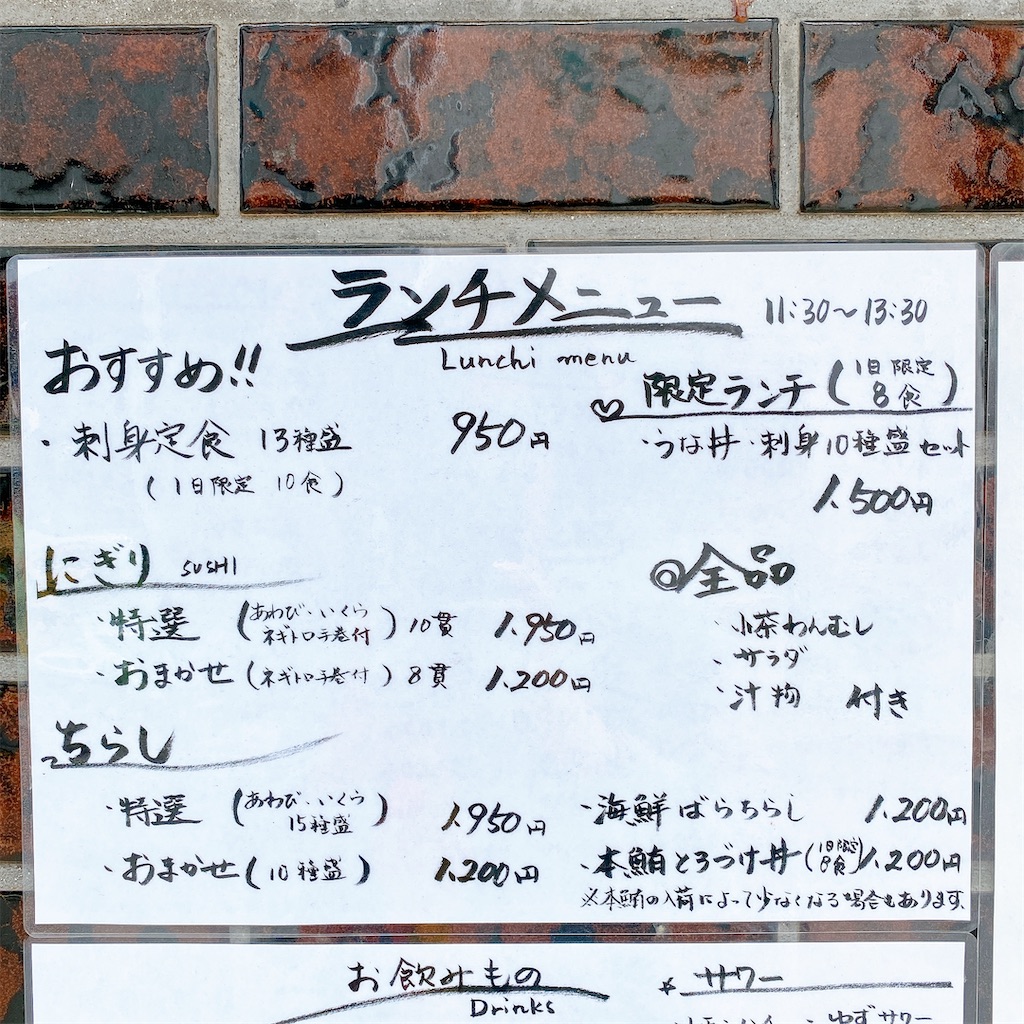 ランチメニュー 11:30～13:30
Lunchi menu
おすすめ!!
・刺身定食 13種盛 950円
(1日限定 10食)
限定ランチ(1日限定 8食)
・うな丼・刺身10種盛セット
1.500円
にぎり SUSHI
・特選 (あわび・いくら ネギトロ手巻付) 10貫 1.950円
・おまかせ (ネギトロ手巻付) 8貫 1.200円
◎全品
・小茶わんむし
・サラダ
・汁物 付き
ちらし
・特選 (あわび・いくら 15種盛) 1.950円
・おまかせ (10種盛) 1.200円
・海鮮ばらちらし 1.200円
・本鮪とろづけ丼(1日限定 8食) 1.200円
※本鮪の入荷によって少なくなる場合もあります.
お飲みもの
Drinks
サワー
ゆずサワー